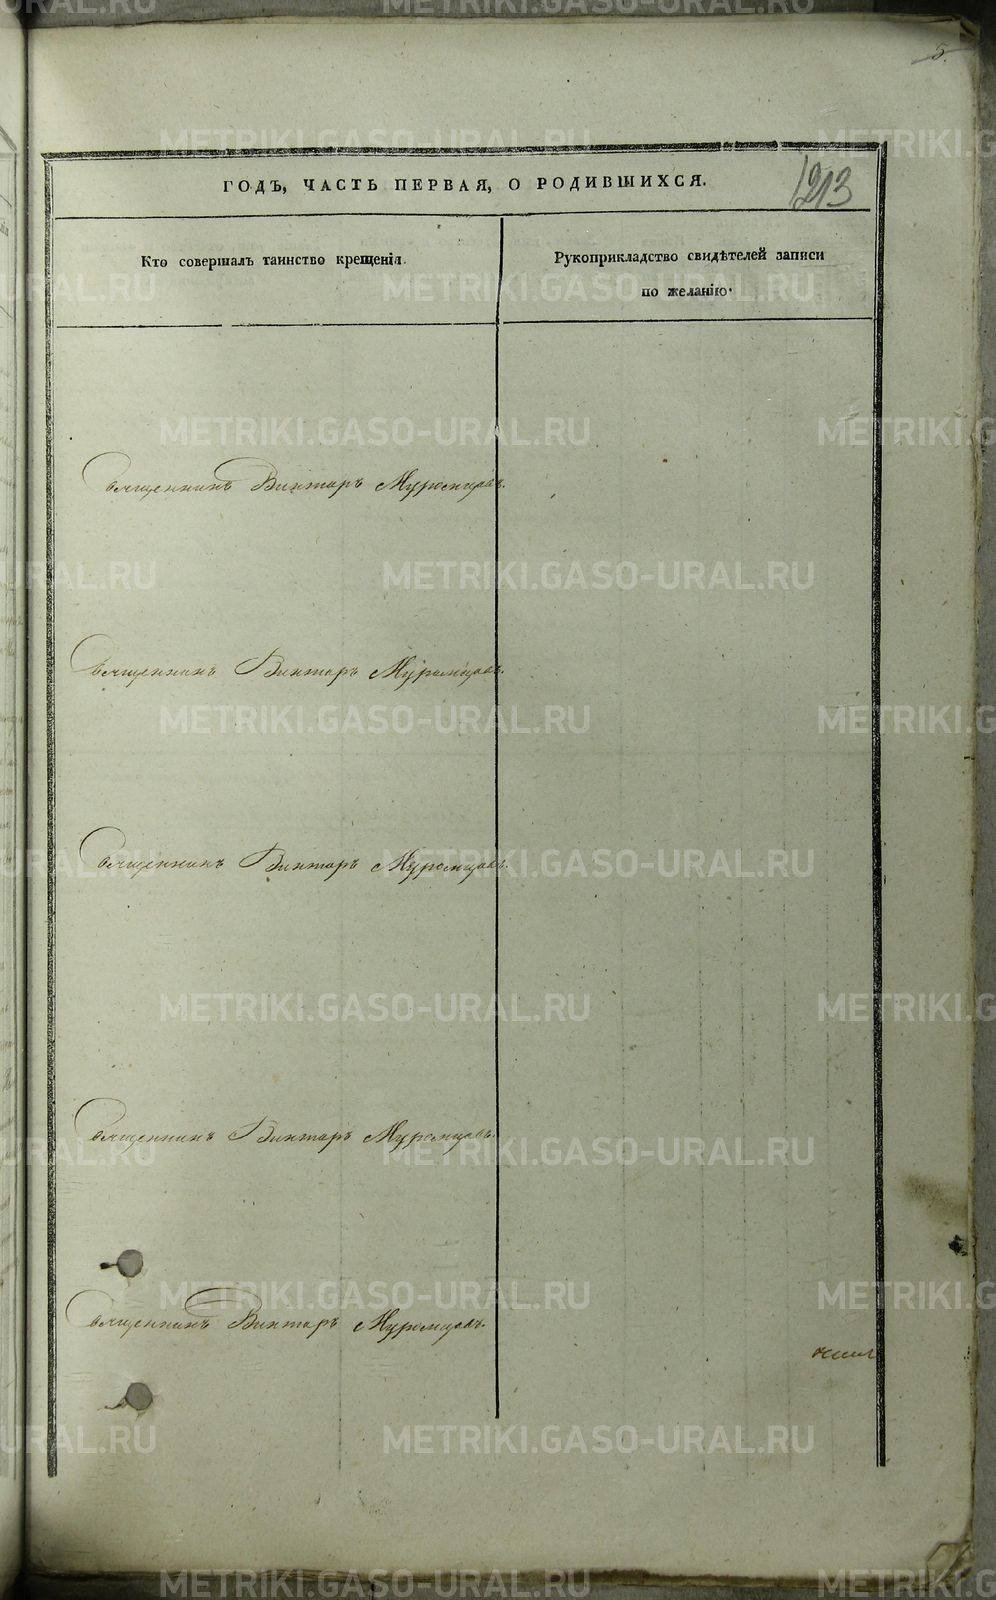 5.
ГОДЪ, ЧАСТЬ ПЕРВАЯ, О РОДИВШИХСЯ.
1213
Кто совершалъ таинство крещенія.
Рукоприкладство свидѣтелей записи
по желанію
Священникъ Викторъ Муромцовъ.
Священникъ Викторъ Муромцовъ.
Священникъ Викторъ Муромцовъ.
Священникъ Викторъ Муромцовъ.
Священникъ Викторъ Муромцовъ.
METRIKI.GASO-URAL.RU